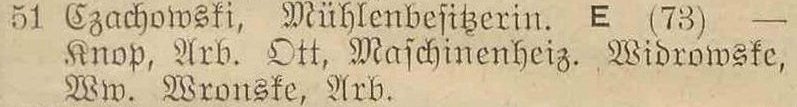 51 Czachowski, Mühlenbesitzerin. E (73) —
Knop, Arb. Ott, Maschinenheiz. Widrowske,
Ww. Wronske, Arb.